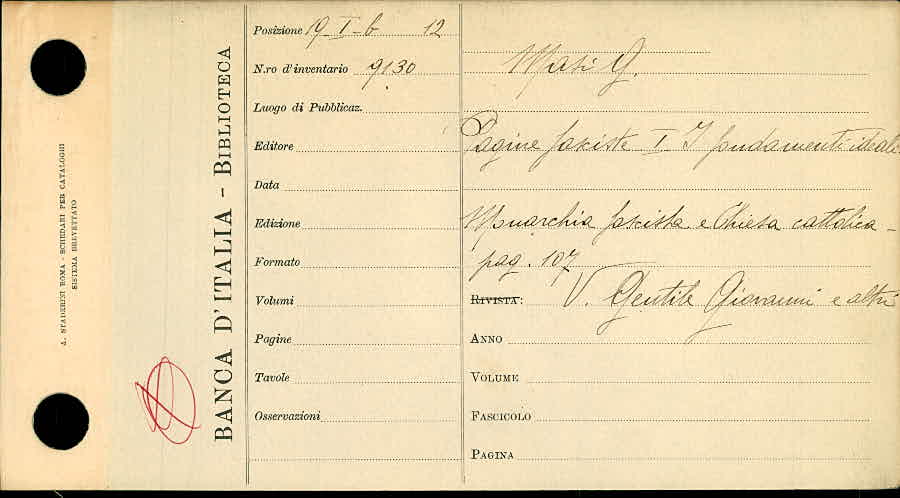 A. STADERINI ROMA - SCHEDARI PER CATALOGHI
SISTEMA BREVETTATO
BANCA D'ITALIA - BIBLIOTECA
Posizione 19-I-b 12
N.ro d'inventario 9130
Luogo di Pubblicaz.
Editore
Data
Edizione
Formato
Volumi
Pagine
Tavole
Osservazioni
Masi G.
Pagine fasciste I I fondamenti ideali
Monarchia fascista e Chiesa cattolica -
pag. 107
RIVISTA: V. Gentile Giovanni e altri
ANNO
VOLUME
FASCICOLO
PAGINA